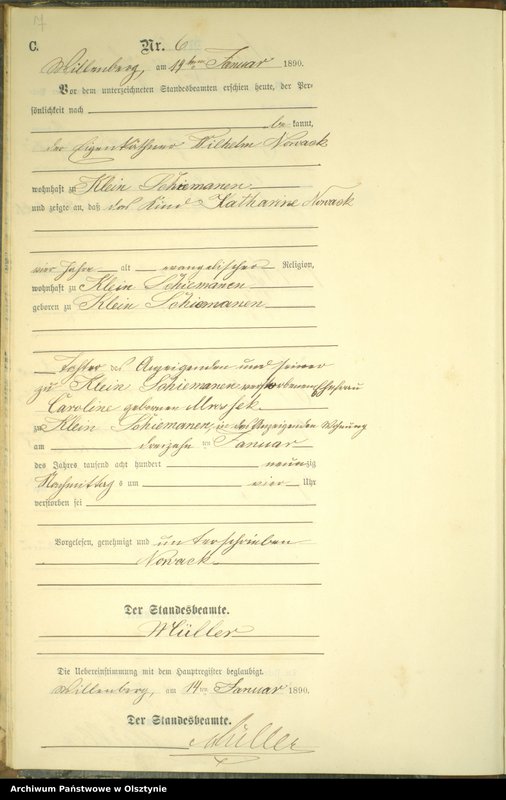 C. Nr. 6
Willenberg, am 14ten Januar 1890.
Vor dem unterzeichneten Standesbeamten erschien heute, der Per-
sönlichkeit nach
be kannt,
der Eigenkäthner Wilhelm Nowack
wohnhaft zu Klein Schiemanen
und zeigte an, daß das Kind Katharine Nowack
vier Jahre alt evangelischer Religion,
wohnhaft zu Klein Schiemanen
geboren zu Klein Schiemanen
Tochter des Anzeigenden und seiner
zu Klein Schiemanen verstorbenen Ehefrau
Caroline geborenen
zu Klein Schiemanen, in des Anzeigenden Wohnung
am dreizehn ten Januar
des Jahres tausend acht hundert neunzig
Nachmittag s um vier Uhr
verstorben sei
Vorgelesen, genehmigt und unterschrieben
Nowack
Der Standesbeamte.
Müller
Die Uebereinstimmung mit dem Hauptregister beglaubigt.
Willenberg, am 14ten Januar 1890.
Der Standesbeamte.
Müller
Archiwum Państwowe w Olsztynie